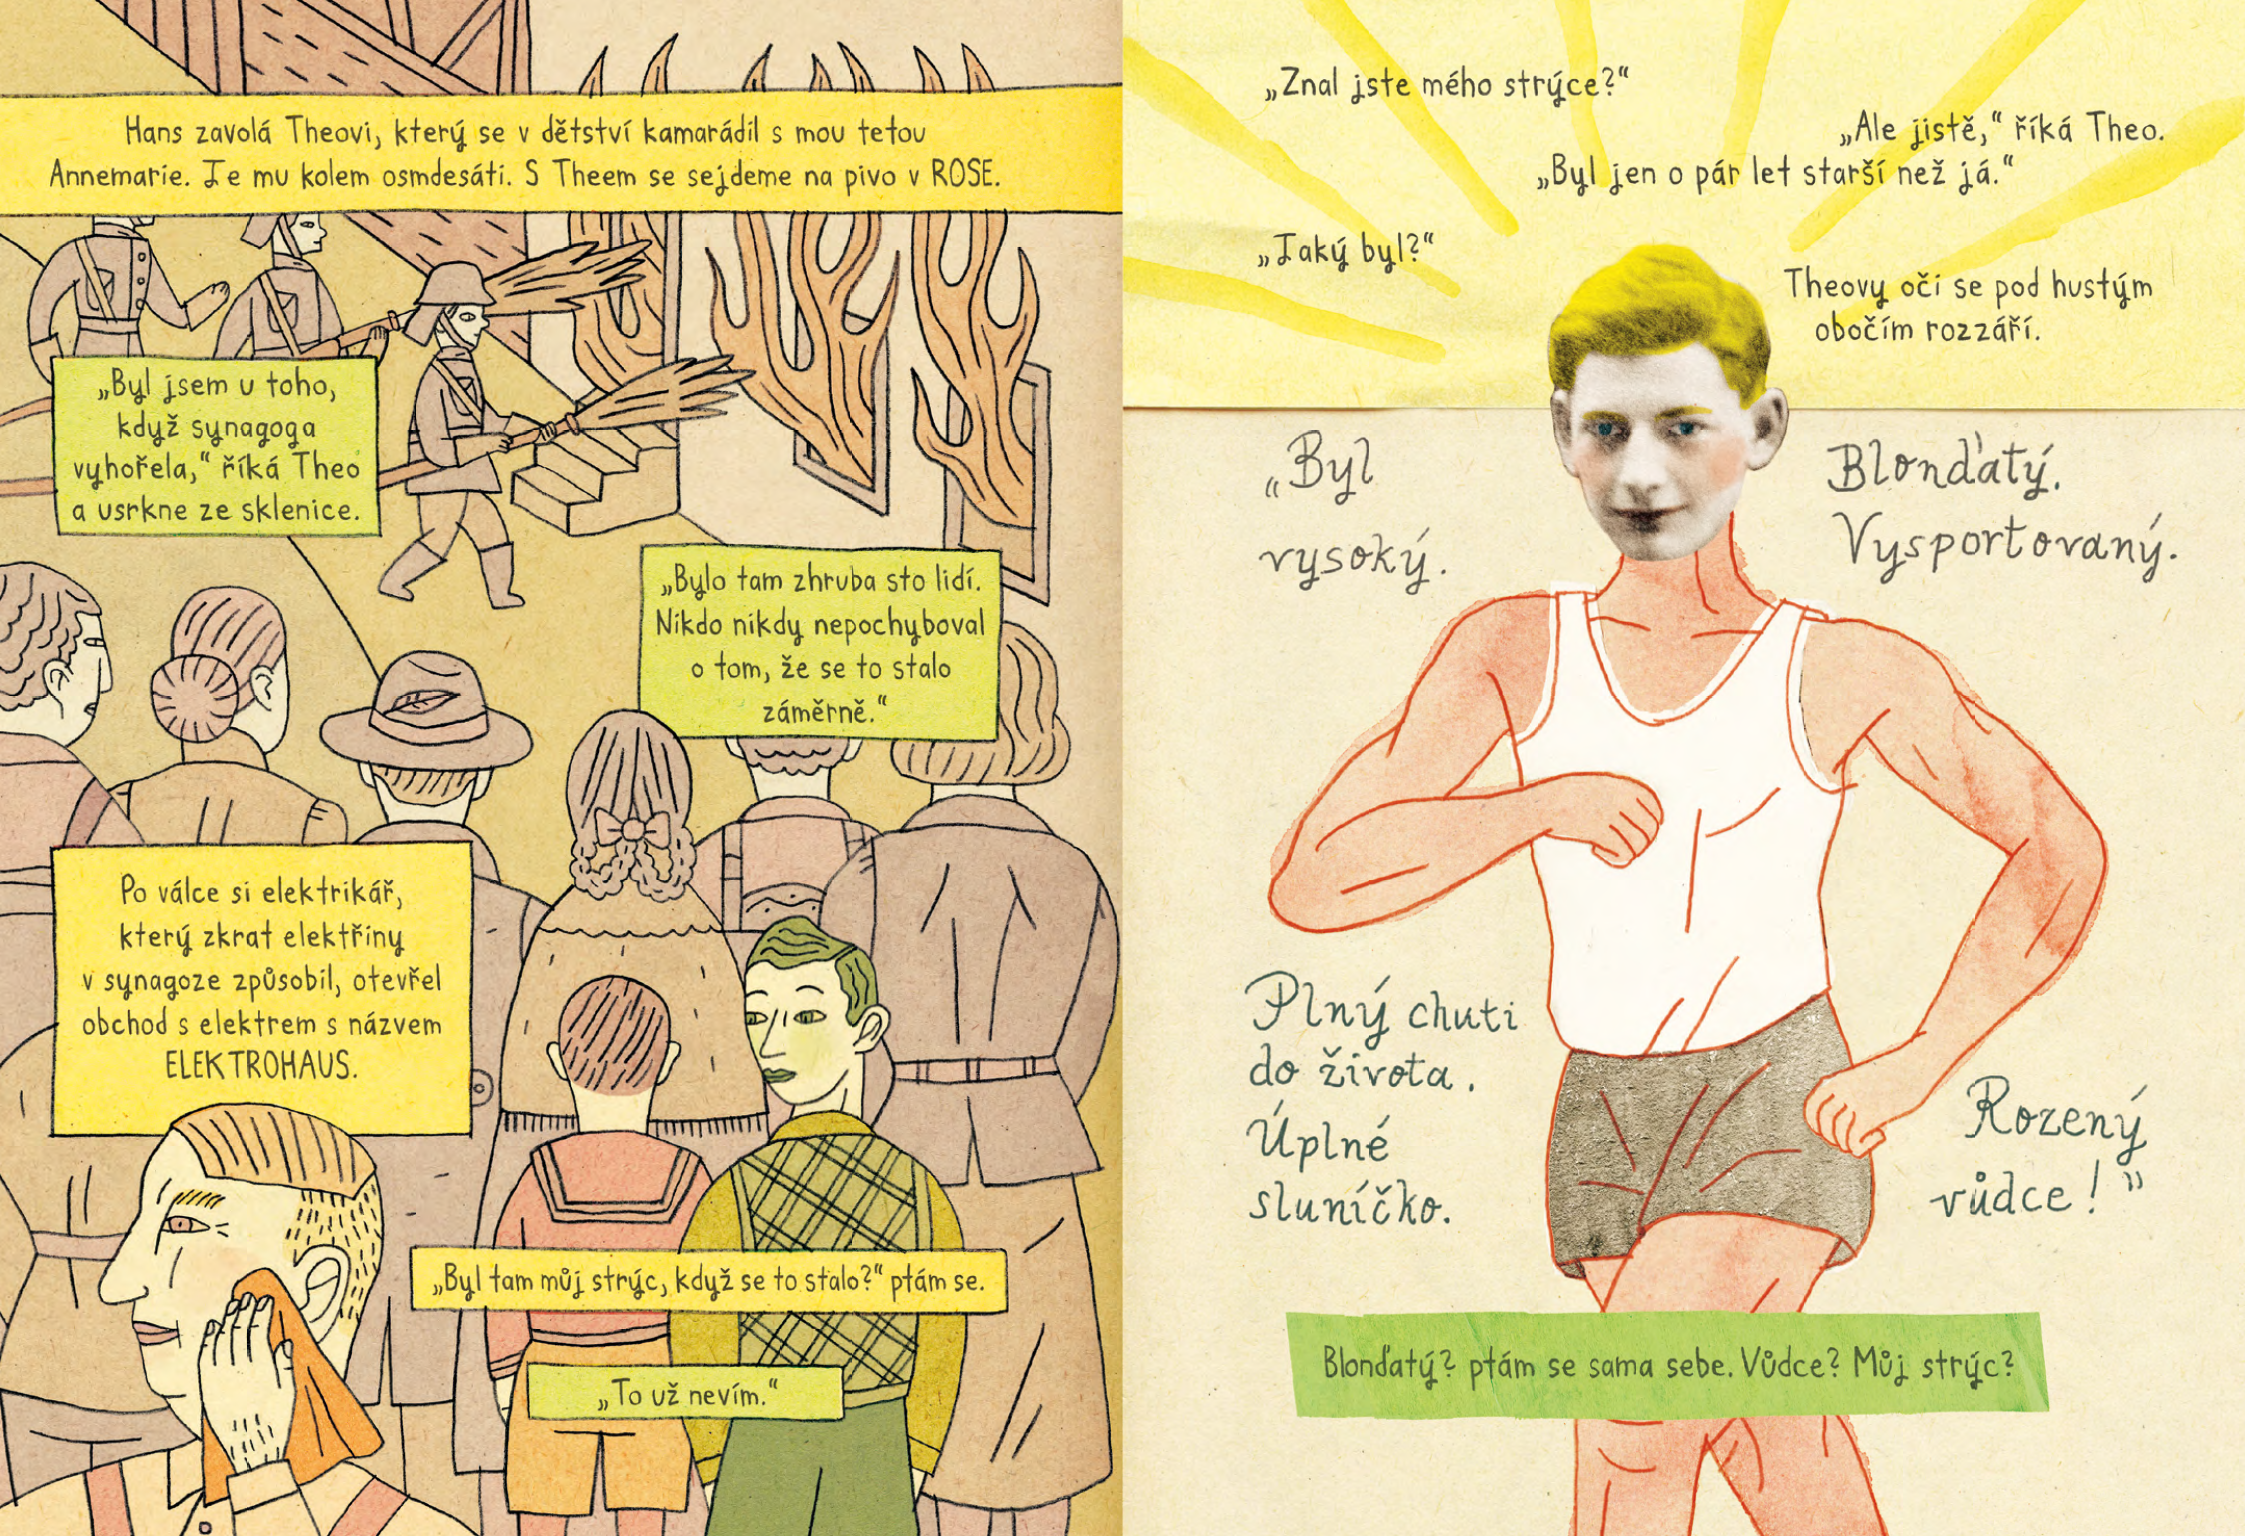 Hans zavolá Theovi, který se v dětství kamarádil s mou tetou
Annemarie. Je mu kolem osmdesáti. S Theem se sejdeme na pivo v ROSE.
„Byl jsem u toho,
když synagoga
vyhořela,“ říká Theo
a usrkne ze sklenice.
„Bylo tam zhruba sto lidí.
Nikdo nikdy nepochyboval
o tom, že se to stalo
záměrně.“
Po válce si elektrikář,
který zkrat elektřiny
v synagoze způsobil, otevřel
obchod s elektrem s názvem
ELEKTROHAUS.
„Byl tam můj strýc, když se to stalo?“ ptám se.
„To už nevím.“
„Znal jste mého strýce?“
„Ale jistě,“ říká Theo.
„Byl jen o pár let starší než já.“
„Jaký byl?“
Theovy oči se pod hustým
obočím rozzáří.
„Byl
vysoký.
Blonďatý.
Vysportovaný.
Plný chuti
do života.
Úplné
sluníčko.
Rozený
vůdce!”
Blonďatý? ptám se sama sebe. Vůdce? Můj strýc?